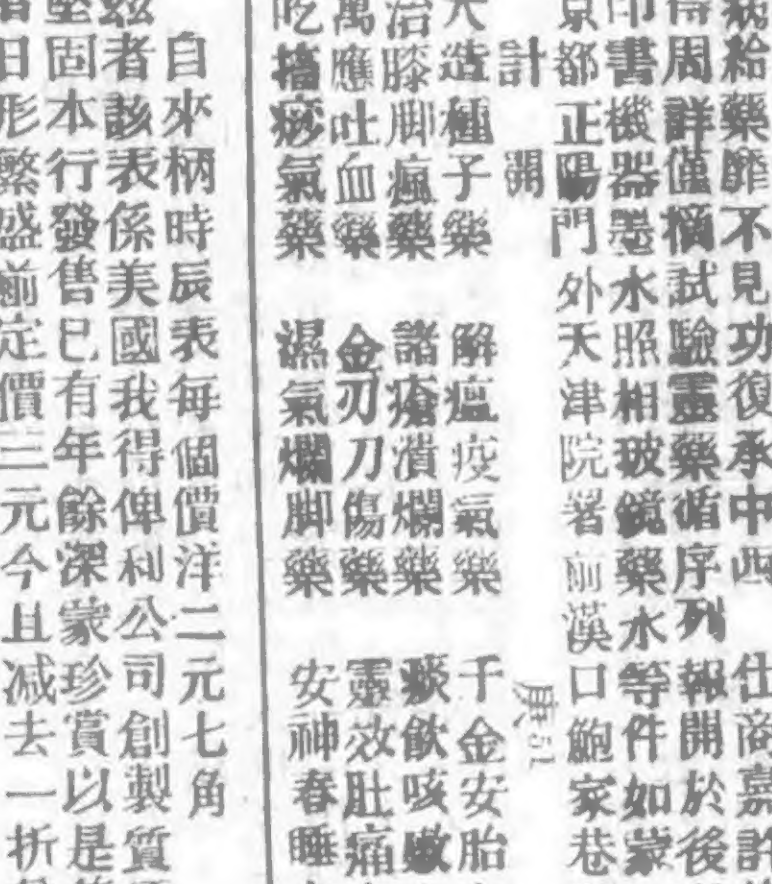 病給藥靡不見功復承中西 仕商嘉許
得周詳僅摘試驗靈藥循序列 報開於後
印書機器墨水照相玻鏡藥水等件如蒙
京都正陽門外天津院署前漢口鮑家巷
計 開
大造種子藥 解瘟疫氣藥 千金安胎
治膝脚瘋藥 諸瘡潰爛藥 痰飲咳嗽
萬應吐血藥 金刃刀傷藥 靈效肚痛
吃掿痧氣藥 濕氣爛脚藥 安神春睡
自來柄時辰表每個價洋二元七角
茲者該表係美國我得俾利公司創製質
堅固本行發售已有年餘深蒙珍賞以是
日形繁盛前定價三元今且減去一折